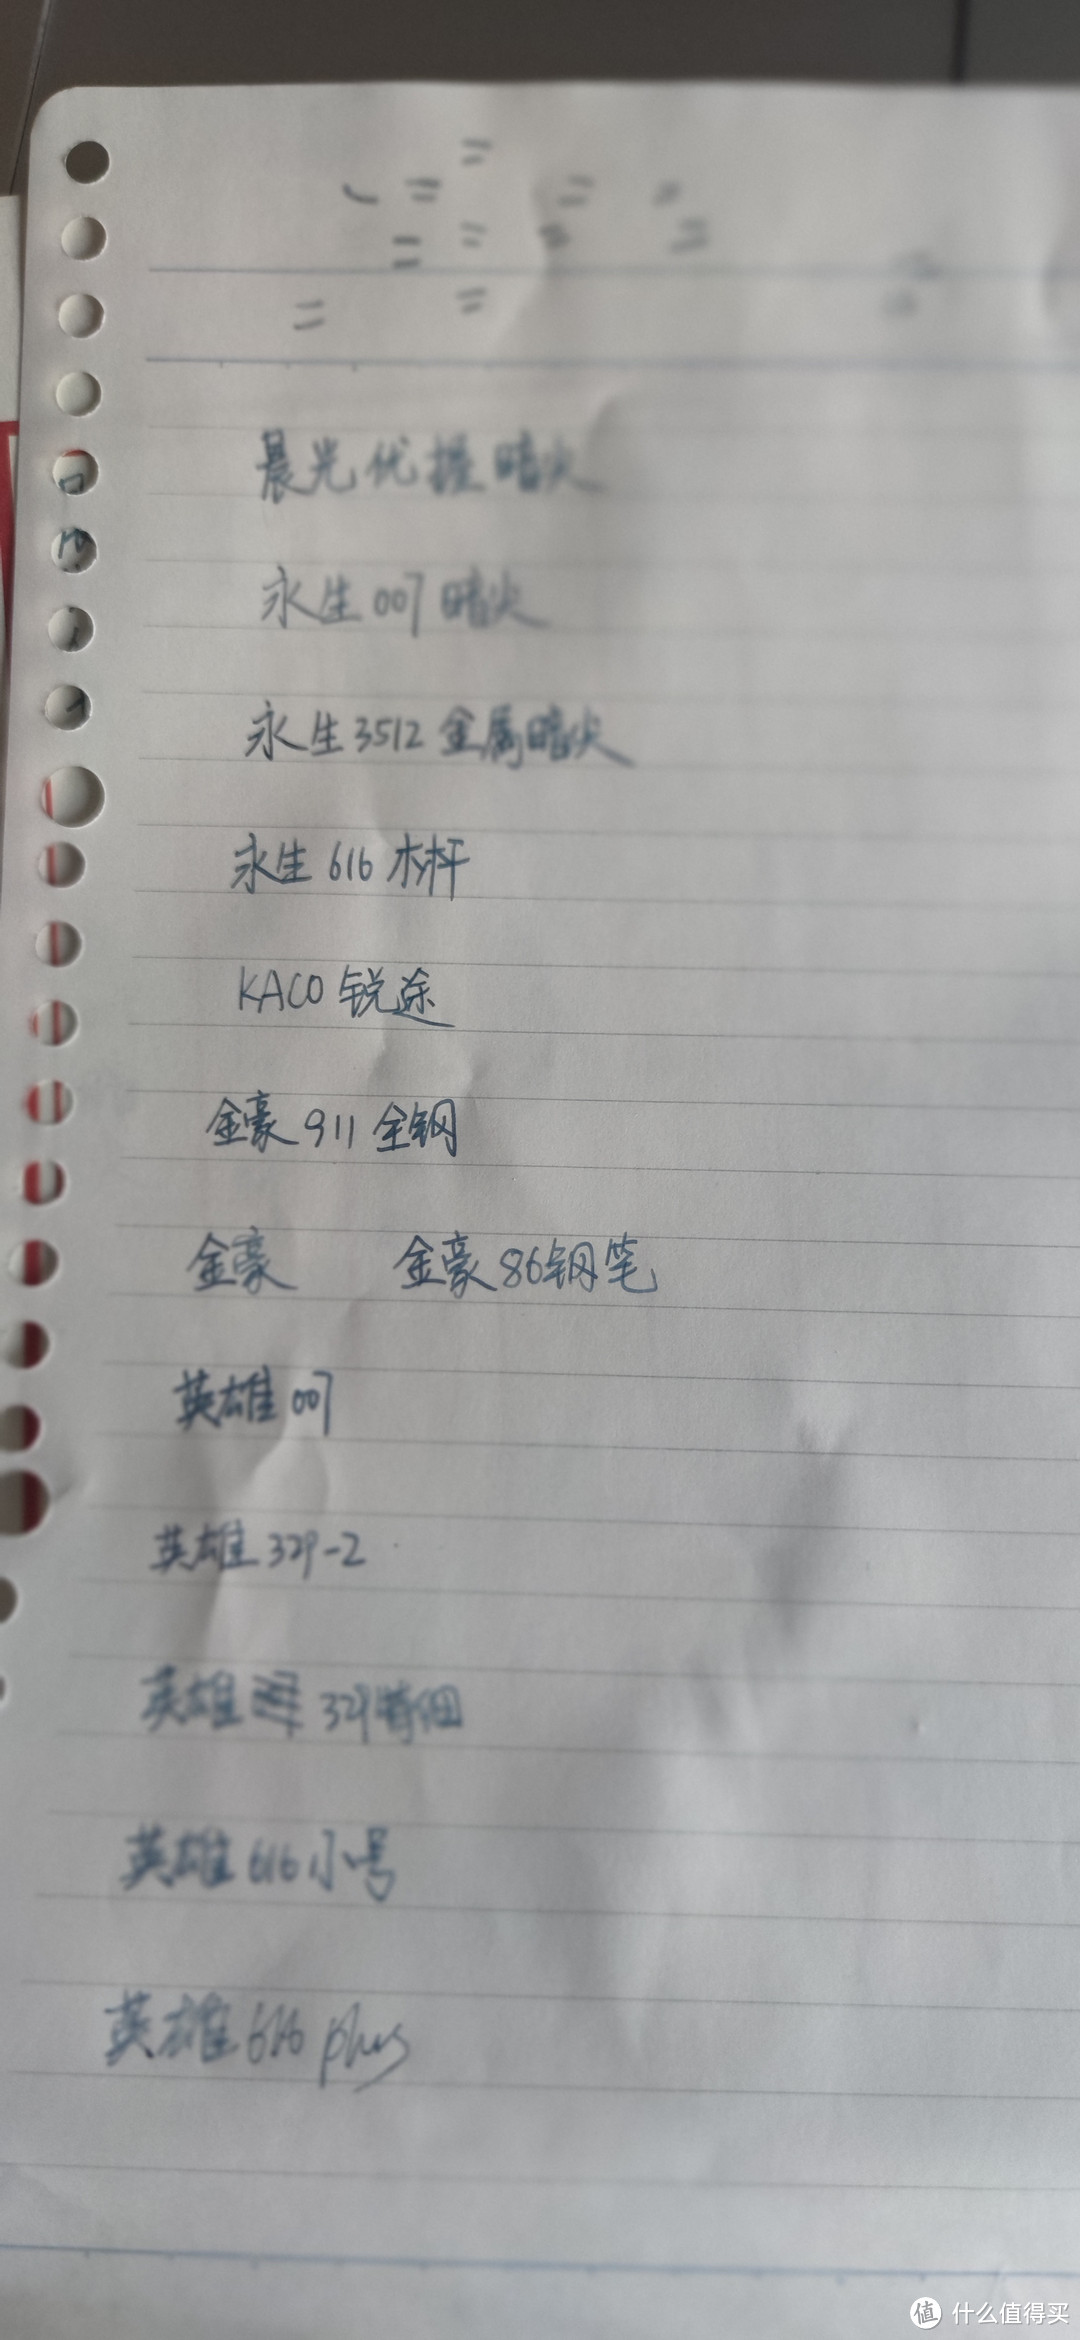 晨光优握暗尖
永生007暗尖
永生3512金属暗尖
永生616木杆
KACO锐途
金豪911全钢
金豪 金豪86钢笔
英雄007
英雄329-2
英雄 329特细
英雄616小号
英雄616plus
值 什么值得买